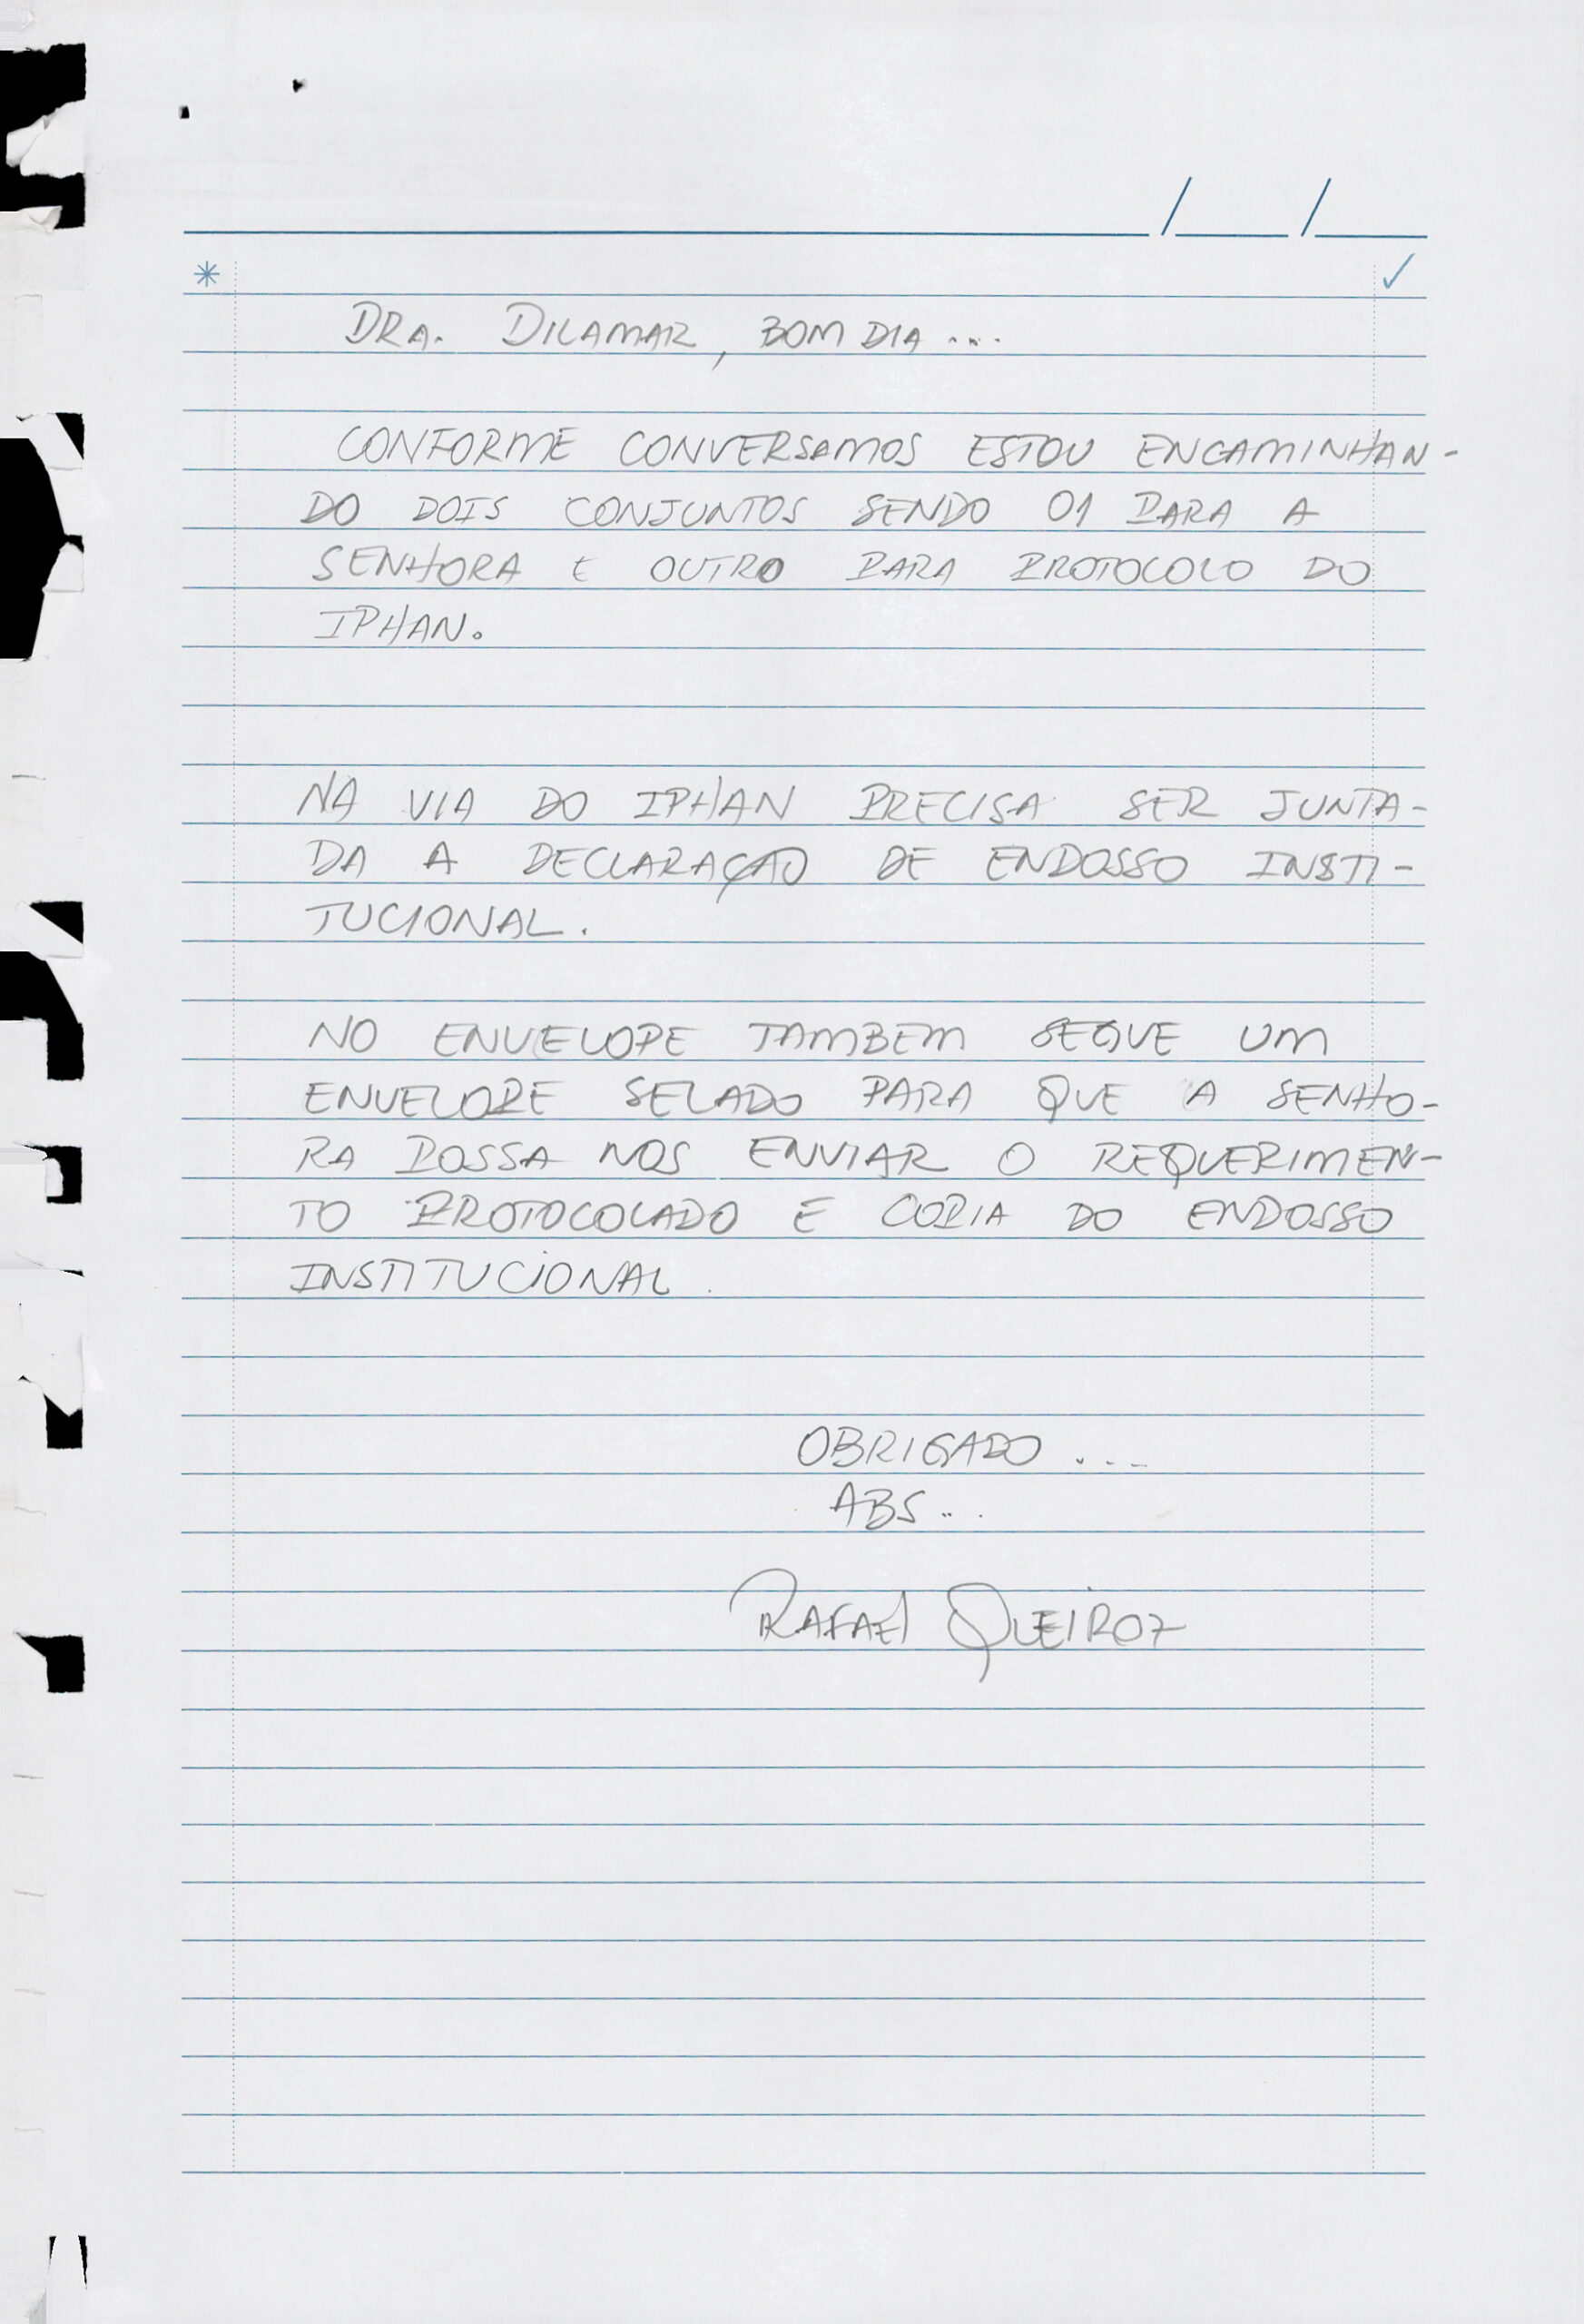 DRA. DILAMAR, BOM DIA ...
CONFORME CONVERSAMOS ESTOU ENCAMINHAN-
DO DOIS CONJUNTOS SENDO 01 PARA A
SENHORA E OUTRO PARA PROTOCOLO DO
IPHAN.
NA VIA DO IPHAN PRECISA SER JUNTA-
DA A DECLARAÇÃO DE ENDOSSO INSTI-
TUCIONAL.
NO ENVELOPE TAMBEM SEGUE UM
ENVELOPE SELADO PARA QUE A SENHO-
RA POSSA NOS ENVIAR O REQUERIMEN-
TO PROTOCOLADO E COPIA DO ENDOSSO
INSTITUCIONAL.
OBRIGADO ...
ABS...
RAFAEL QUEIROZ